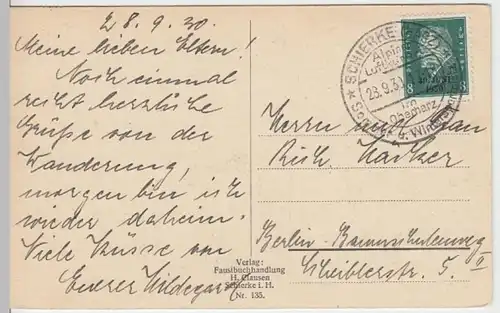 28.9.30.
Meine lieben Eltern!
Noch einmal
recht herzliche
Grüße von der
Wanderung,
morgen bin ich
wieder daheim.
Viele Küsse von
Eurer Hildegard
SCHIERKE
Luftkur
23.9.30
Oberharz
u. Winter
8
30. JUNI
1930
Herrn und Frau
Rich
Berlin-Baumschulenweg
Scheiblerstr. 5. II
Verlag:
Faustbuchhandlung
H. Clausen
Schierke i. H.
Nr. 135.